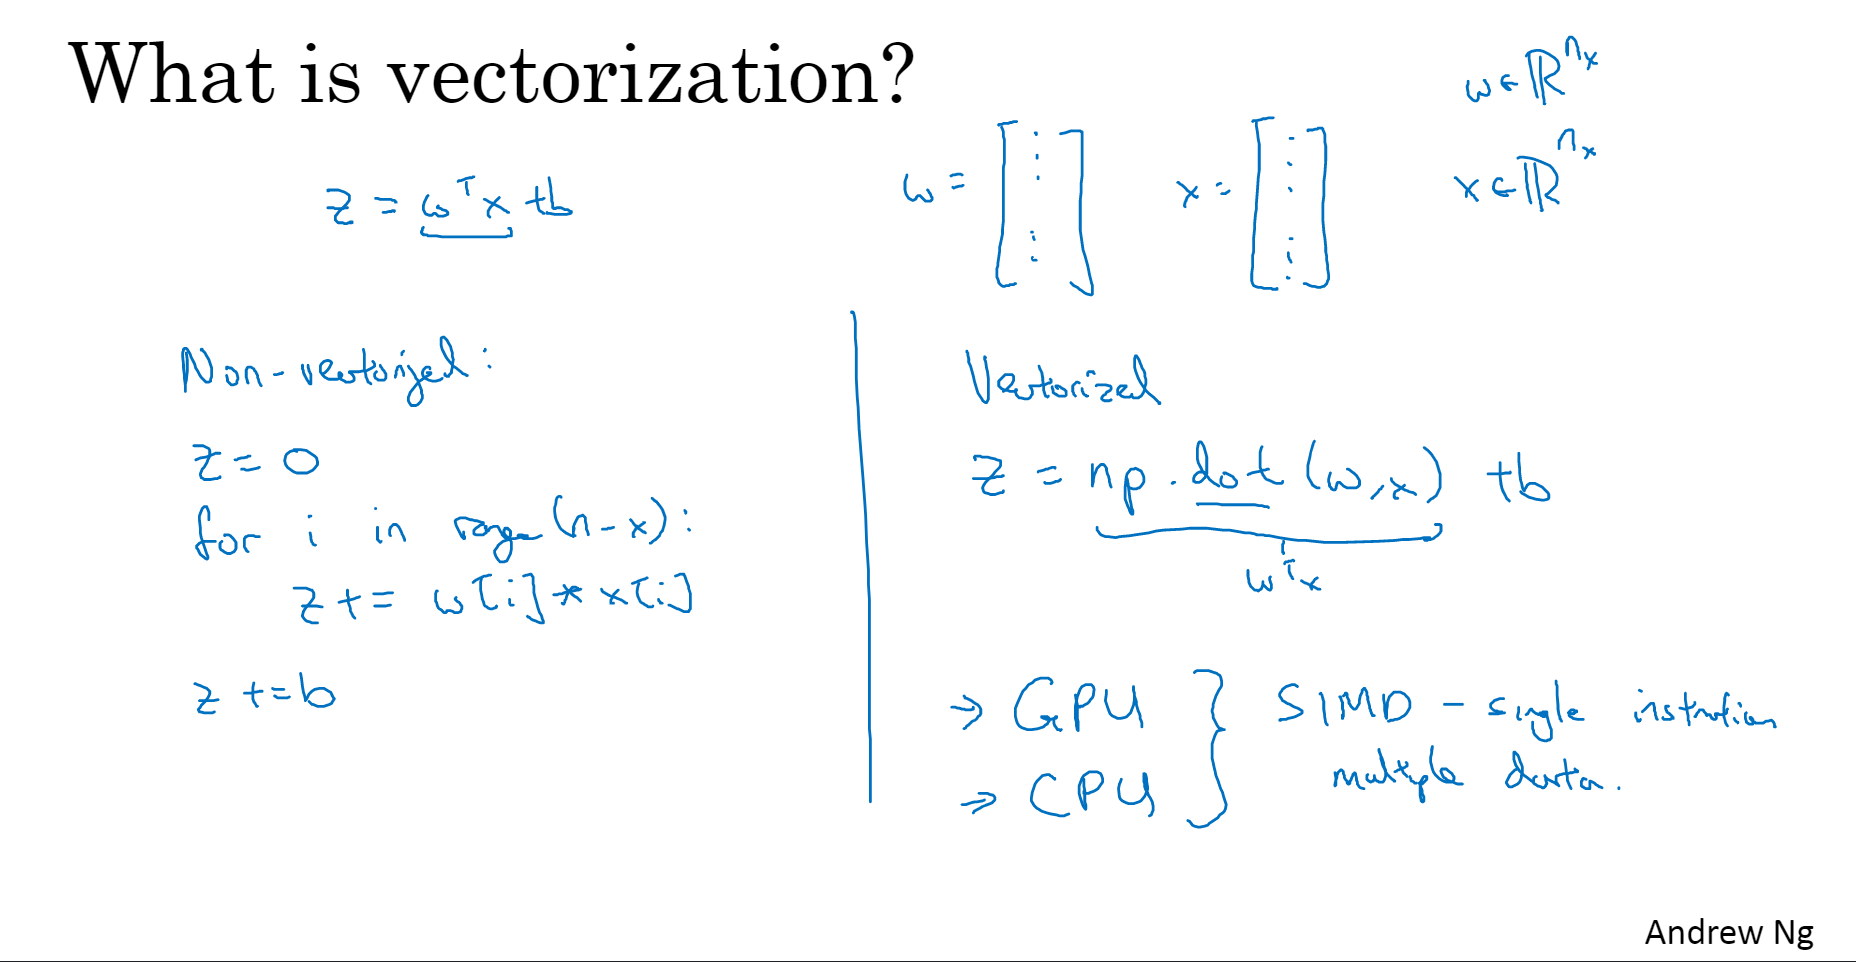 What is vectorization?
z = wᵀx + b
w = [⋮ ⋮]
x = [⋮ ⋮]
w ∈ ℝⁿˣ
x ∈ ℝⁿˣ
Non-vectorized:
z = 0
for i in range(n-x):
z += w[i] * x[i]
z += b
Vectorized
z = np.dot(w,x) + b
wᵀx
→ GPU
→ CPU
} SIMD - single instruction
multiple data.
Andrew Ng